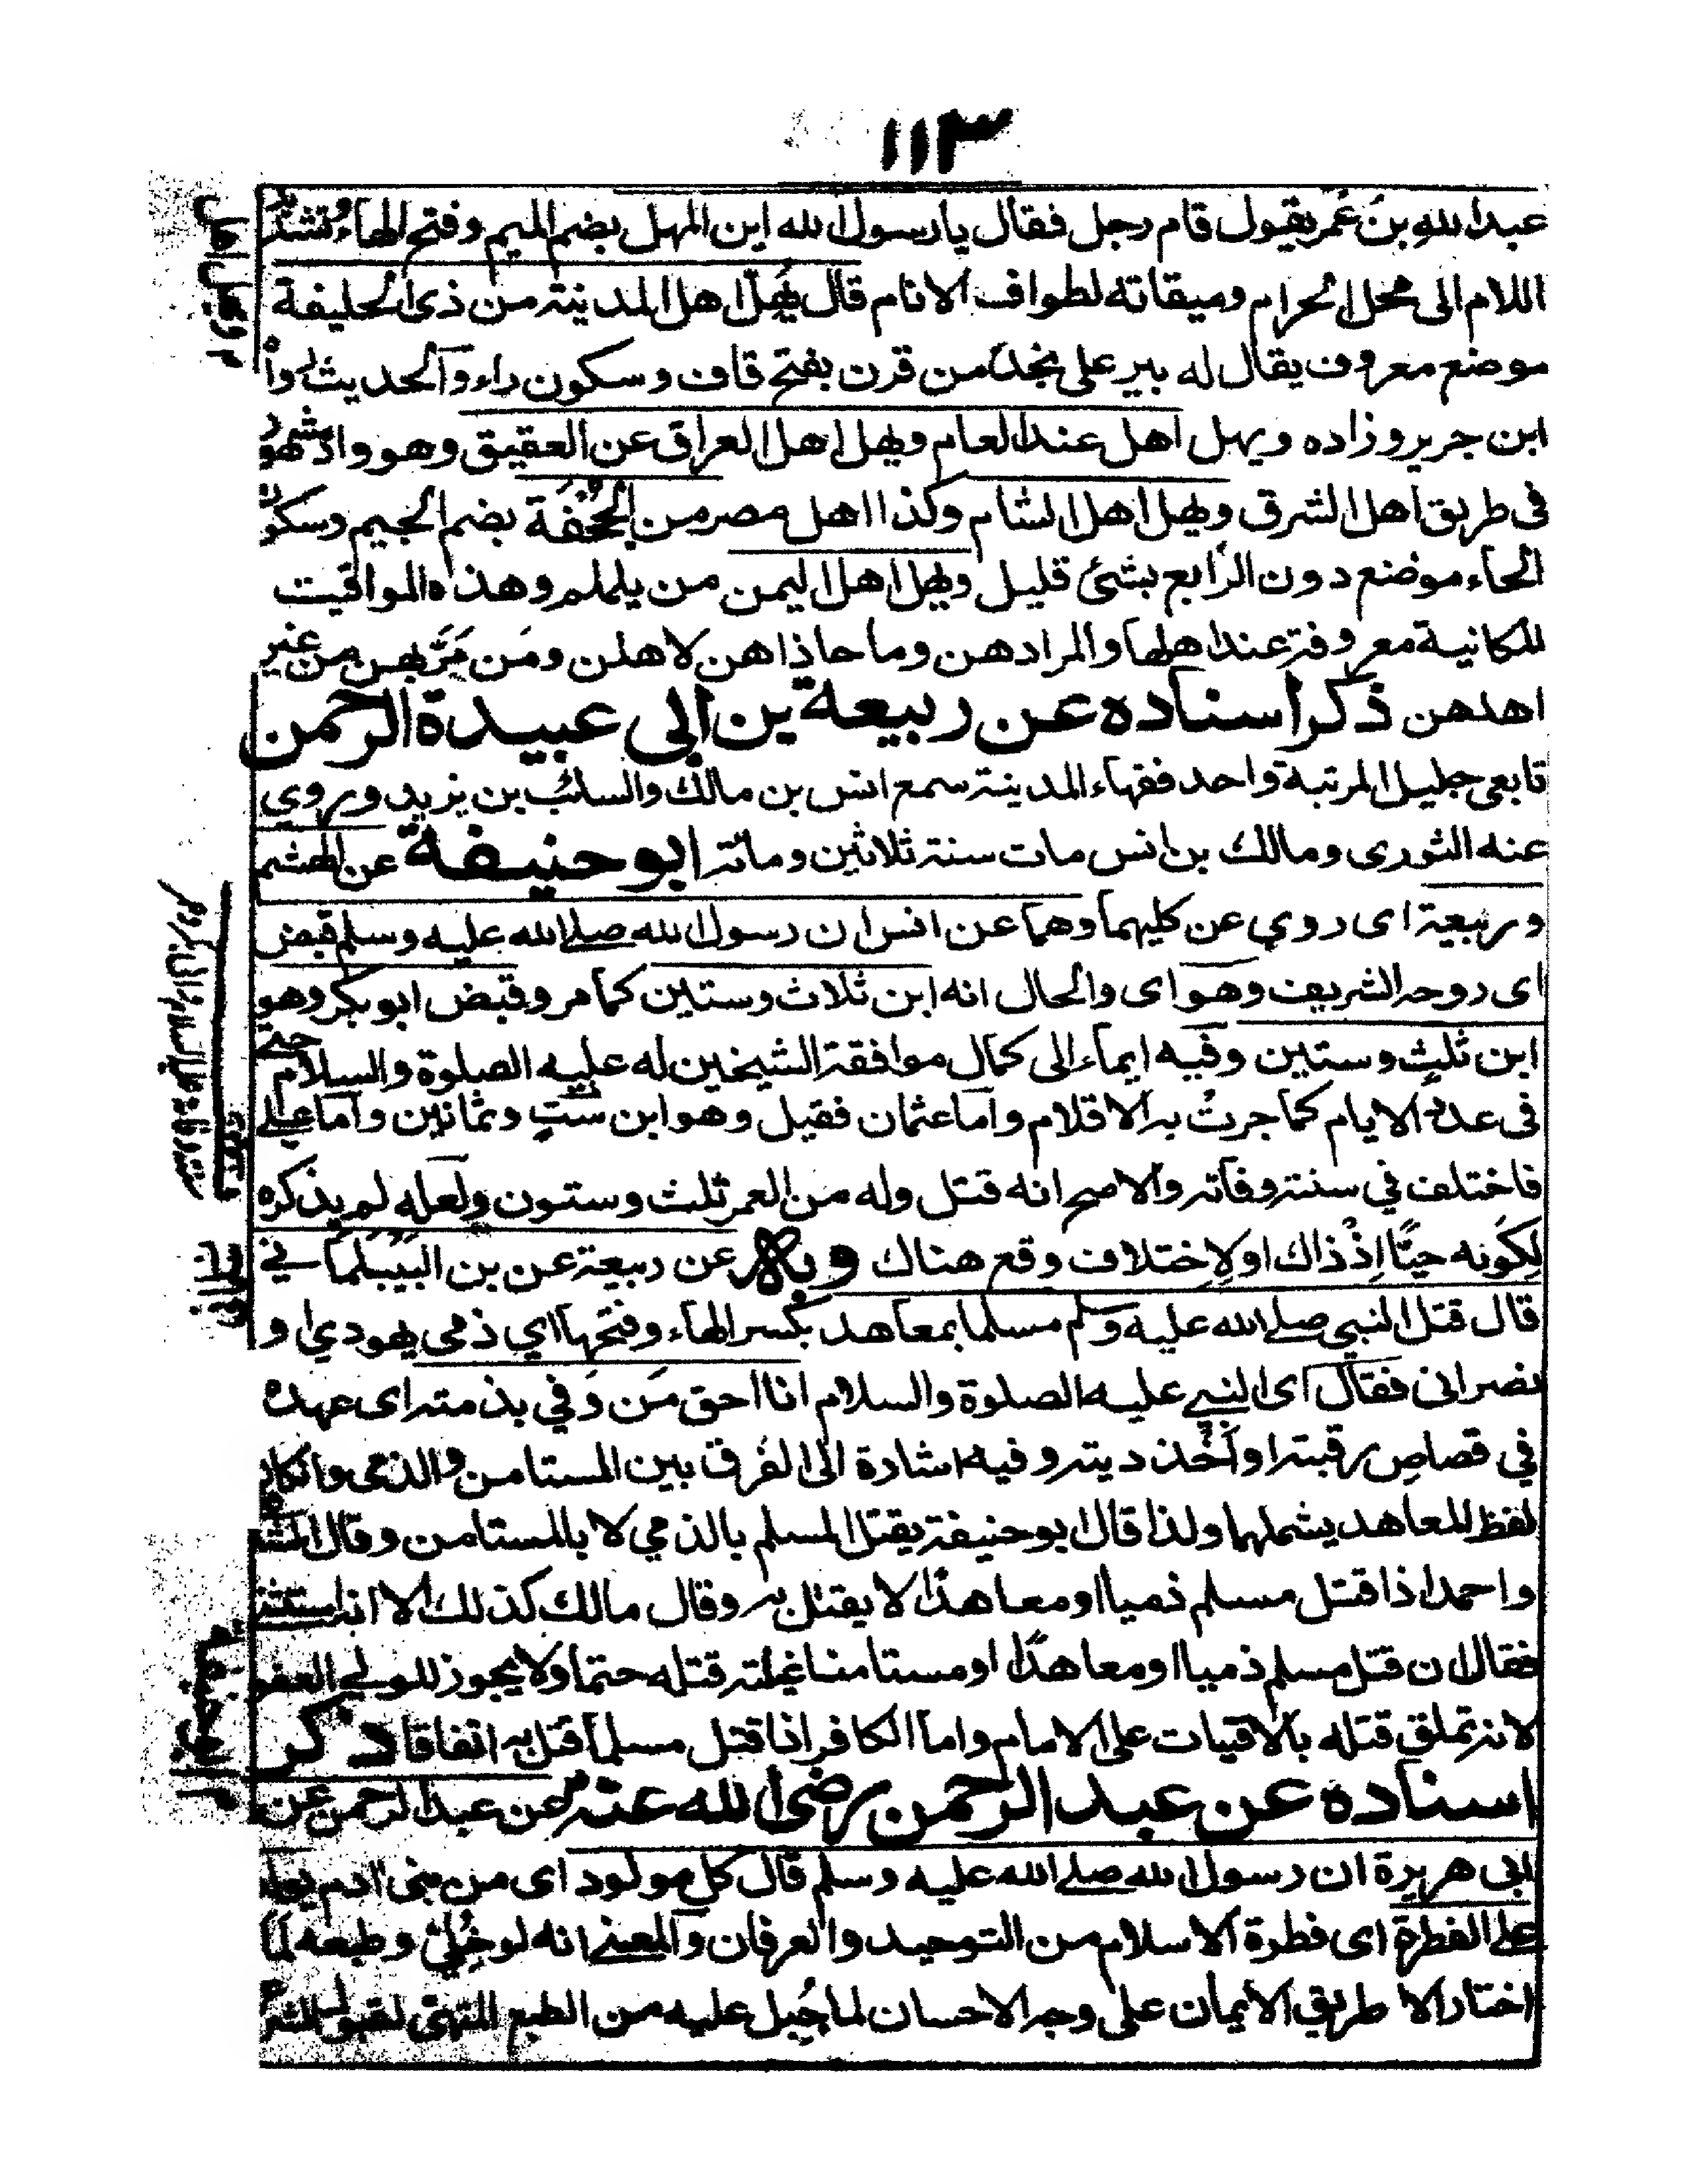 ١١٣
عبدالله بن عمر يقول قام رجل فقال يا رسول الله اين المهل بضم الميم وفتح الهاء وتشديد
اللام الى محل احرام وميقاته لطواف الانام قال يهل اهل المدينة من ذى الحليفة
موضع معروف يقال له بير على نجد من قرن بفتح قاف وسكون راء والحديث
ابن جرير وزاده ويهل اهل عند العام ويهل اهل العراق عن العقيق وهو واد مشهور
فى طريق اهل الشرق ويهل اهل الشام وكذا اهل مصر من الجحفة بضم الجيم وسكون
الحاء موضع دون الرابع بشئ قليل ويهل اهل اليمن من يلملم وهذه المواقيت
المكانية معروفة عند اهلها والمراد هن وما حاذاهن لاهلن ومن مر بهن من غير
اهلهن ذكر اسناده عن ربيعة بن ابى عبيدة الرحمن
تابعى جليل المرتبة واحد فقهاء المدينة سمع انس بن مالك والسائب بن يزيد وروي
عنه الثورى ومالك بن انس مات سنة ثلاثين ومائة ابو حنيفة عن الهشيم
وربيعة اى روي عن كليهما وهما عن انس ان رسول الله صلى الله عليه وسلم قبض
اى روحه الشريف وهو اى والحال انه ابن ثلاث وستين كما مر وقبض ابو بكر وهو
ابن ثلث وستين وفيه ايماء الى كمال موافقة الشيخين له عليه الصلوة والسلام حتى
فى عدة الايام كما جرت به الاقلام واما عثمان فقيل وهو ابن ست وثمانين واما على
فاختلف في سنة وفاته والاصح انه قتل وله من العمر ثلث وستون ولعله لم يذكره
لكونه حيًّا اذ ذاك او لاختلاف وقع هناك وبه عن ربيعة عن بن البيلماني
قال قتل النبي صلى الله عليه وسلم مسلما بمعاهد بكسر الهاء وفتحها اي ذمى يهودي او
نصرانى فقال اى النبي عليه الصلوة والسلام انا احق من وفي بذمته اى عهده
في قصاص رقبته او اخذ ديته وفيه اشارة الى الفرق بين المستامن والذمى وان كان
لفظ المعاهد يشملهما ولذا قال ابو حنيفة يقتل المسلم بالذمي لا بالمستامن وقال
واحمد اذا قتل مسلم ذميا او معاهدًا لا يقتل به وقال مالك كذلك الا انه استثنى
فقال ان قتل مسلم ذميا او معاهدًا او مستامنا غيلة قتله حتما ولا يجوز للولي العفو
لانه تعلق قتله بالافتيات على الامام واما الكافر اذا قتل مسلما قتل به اتفاقا ذكر
اسناده عن عبد الرحمن رضى الله عنه عن عبد الرحمن عن
ابى هريرة ان رسول الله صلى الله عليه وسلم قال كل مولود اى من بنى ادم يولد
على الفطرة اى فطرة الاسلام من التوحيد والعرفان والمعنى انه لو خلي وطبعه لما
اختار الا طريق الايمان على وجه الاحسان لما جبل عليه من الطبع المتهئ لقبول